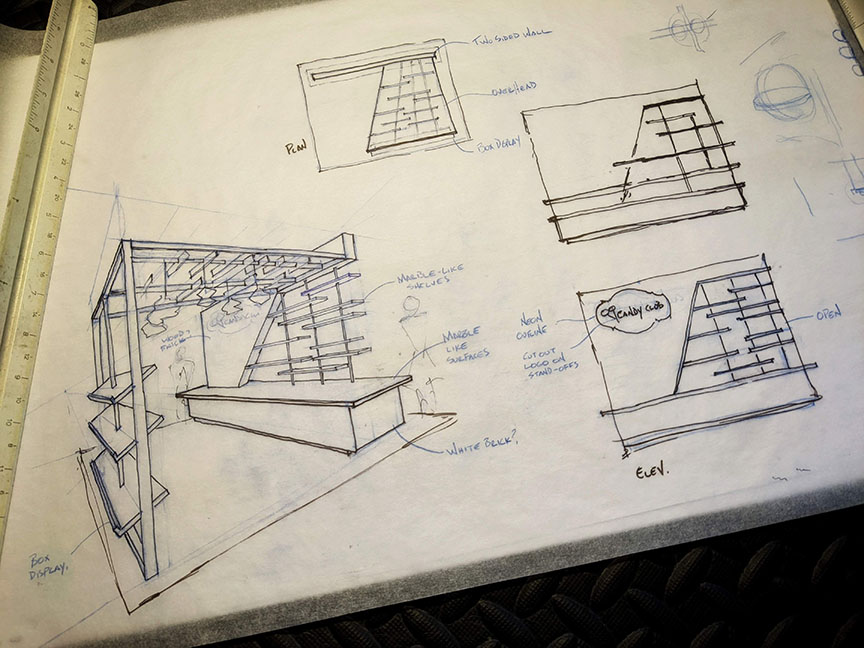 TWO SIDED WALL
OVERHEAD
BOX DISPLAY
PLAN
MARBLE-LIKE
SHELVES
MARBLE
LIKE
SURFACES
WHITE BRICK?
BOX
DISPLAY.
NEON
OUTLINE
CUT OUT
LOGO ON
STAND-OFFS
CANDY CLUB
OPEN
ELEV.